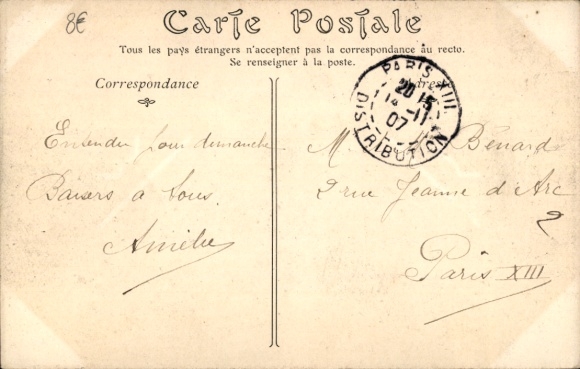 8€
Carte Postale
Tous les pays étrangers n'acceptent pas la correspondance au recto.
Se renseigner à la poste.
Correspondance
Adresse
PARIS XIII
20 15
14 - 11
07
DISTRIBUTION
Entendu pour dimanche
Baisers à tous.
Amélie
M Bénard
2 rue Jeanne d'Arc
2
Paris XIII